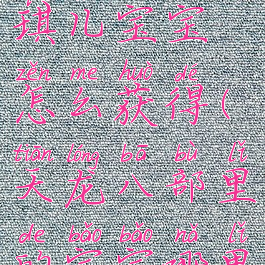 琪儿宝宝
zěn me huò dé
怎么获得(
tiān lóng bā bù lǐ
天龙八部里
de bǎo bǎo nǎ lǐ
的宝宝哪里